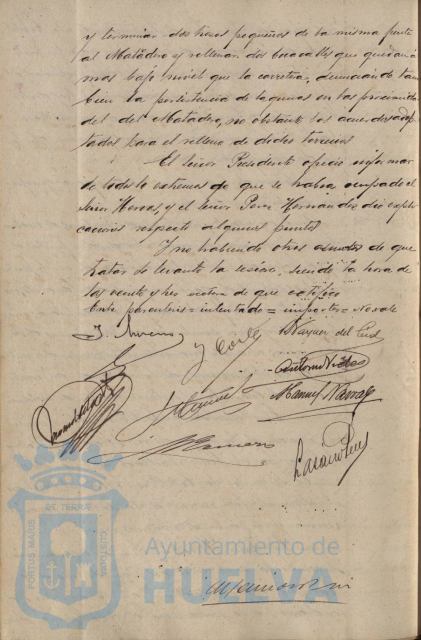 y terminar dos trozos pequeños de la misma frente
al Matadero y rellenar dos bocacalles que quedan á
mas bajo nivel que la carretera, denunciando tam
bien la persistencia de lagunas en las proximida
des del Matadero, no obstante los acuerdos adop
tados para el relleno de dichos terrenos
El Señor Presidente ofreció informar
de todos los extremos de que se habia ocupado el
Señor y el Señor Perez Hernandez dió expli
caciones respecto algunos puntos
Y no habiendo otros asuntos de que
tratar se levantó la sesión, siendo la hora de
las veinte y tres de que certifico
Entre parentesis = intentado = importes = No vale
J. Moreno
y Corte
Vazquez del Cid
Antonio Vides
Manuel Naval
M Romero
Lazaro Perez
PORTUS MARIS
ET TERRÆ
CUSTODIA
Ayuntamiento de
HUELVA